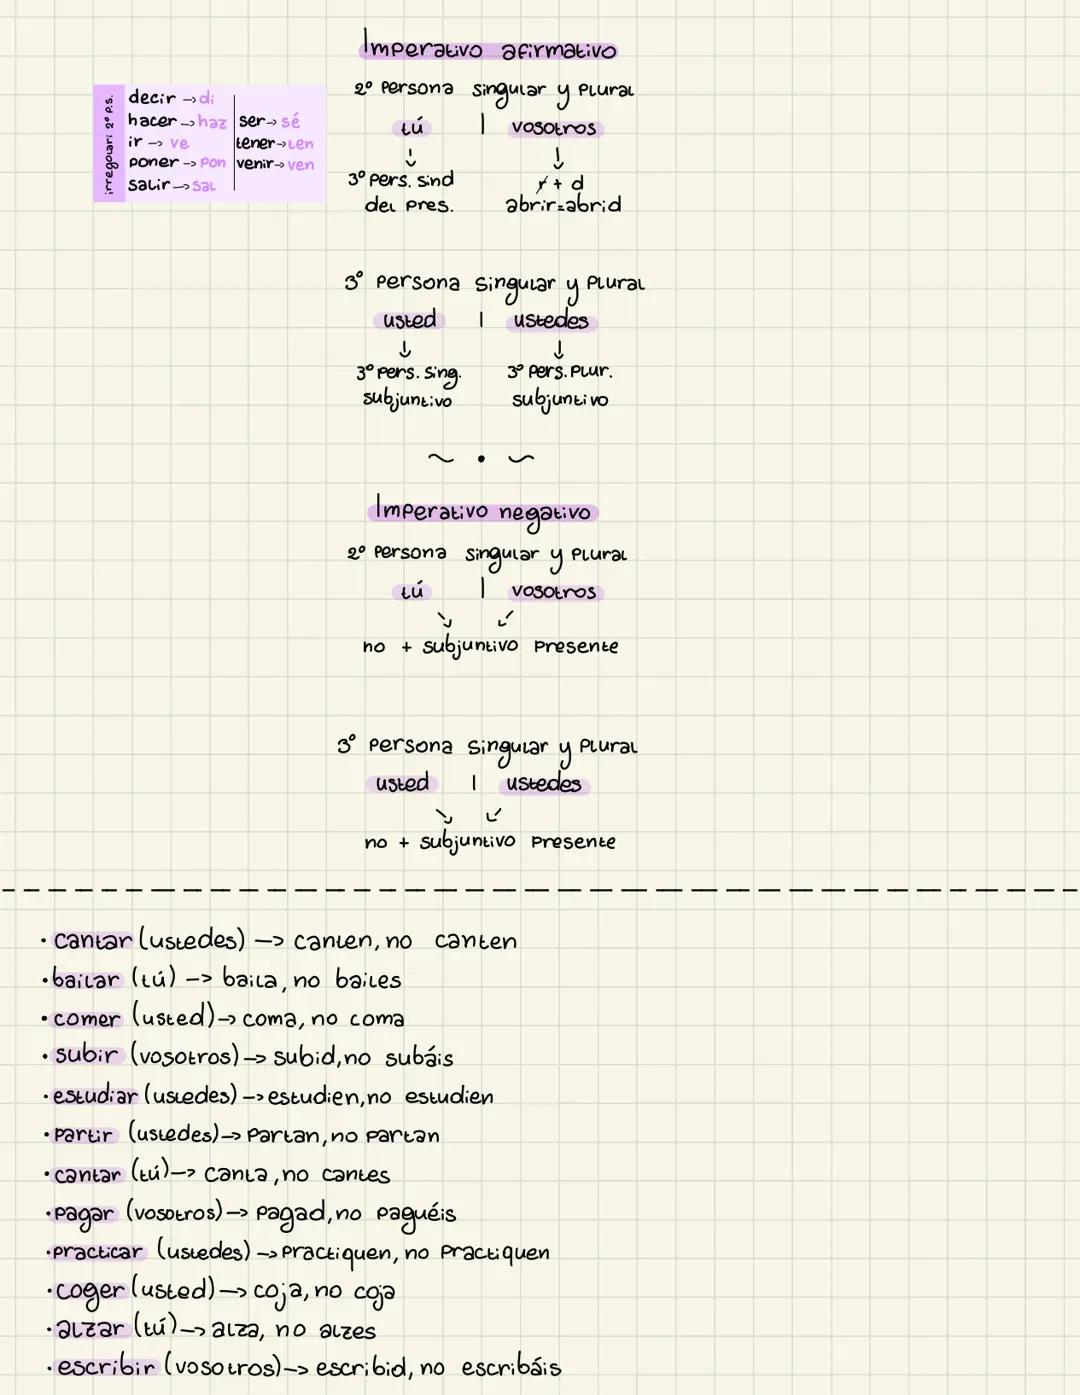 Imperativo afirmativo
2º persona singular y plural
tú | vosotros
3º pers. sind r + d
del pres. abrir=abrid
irregolari 2º p.s.
decir -> di
hacer -> haz
ir -> ve
poner -> pon
salir -> sal
ser -> sé
tener -> ten
venir -> ven
3º persona singular y plural
usted | ustedes
3º pers. sing. 3º pers. plur.
subjuntivo subjuntivo
~ • ~
Imperativo negativo
2º persona singular y plural
tú | vosotros
no + subjuntivo presente
3º persona singular y plural
usted | ustedes
no + subjuntivo presente
• cantar (ustedes) -> canten, no canten
• bailar (tú) -> baila, no bailes
• comer (usted) -> coma, no coma
• subir (vosotros) -> subid, no subáis
• estudiar (ustedes) -> estudien, no estudien
• partir (ustedes) -> partan, no partan
• cantar (tú) -> canta, no cantes
• pagar (vosotros) -> pagad, no paguéis
• practicar (ustedes) -> practiquen, no practiquen
• coger (usted) -> coja, no coja
• alzar (tú) -> alza, no alzes
• escribir (vosotros) -> escribid, no escribáis